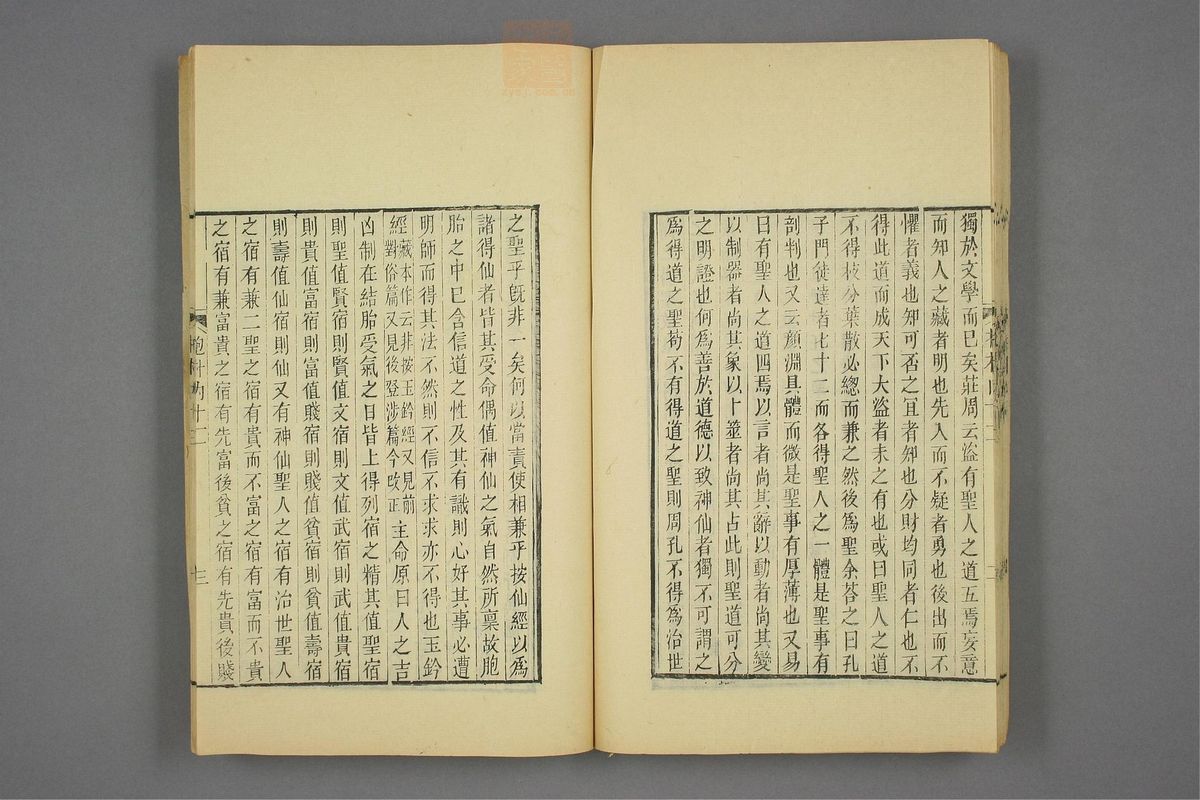 獨於文學而已矣莊周云盜有聖人之道五焉妄意
而知人之藏者明也先入而不疑者勇也後出而不
懼者義也知可否之宜者知也分財均同者仁也不
得此道而成天下大盜者未之有也或曰聖人之道
不得枝分葉散必總而兼之然後爲聖余荅之曰孔
子門徒達者七十二而各得聖人之一體是聖事有
剖判也又云顏淵具體而微是聖事有厚薄也又易
曰有聖人之道四焉以言者尚其辭以動者尚其變
以制器者尚其象以卜筮者尚其占此則聖道可分
之明證也何爲善於道德以致神仙者獨不可謂之
爲得道之聖苟不有得道之聖則周孔不得爲治世
之聖乎旣非一矣何以當責使相兼乎按仙經以爲
諸得仙者皆其受命偶值神仙之氣自然所稟故胞
胎之中已含信道之性及其有識則心好其事必遭
明師而得其法不然則不信不求求亦不得也玉鈐
經藏本作云非按玉鈐經又見前對俗篇又見後登涉篇今改正主命原曰人之吉
凶制在結胎受氣之日皆上得列宿之精其值聖宿
則聖值賢宿則賢值文宿則文值武宿則武值貴宿
則貴值富宿則富值賤宿則賤值貧宿則貧值壽宿
則壽值仙宿則仙又有神仙聖人之宿有治世聖人
之宿有兼二聖之宿有貴而不富之宿有富而不貴
之宿有兼富貴之宿有先富後貧之宿有先貴後賤
抱朴內十二
三
zysj.com.cn